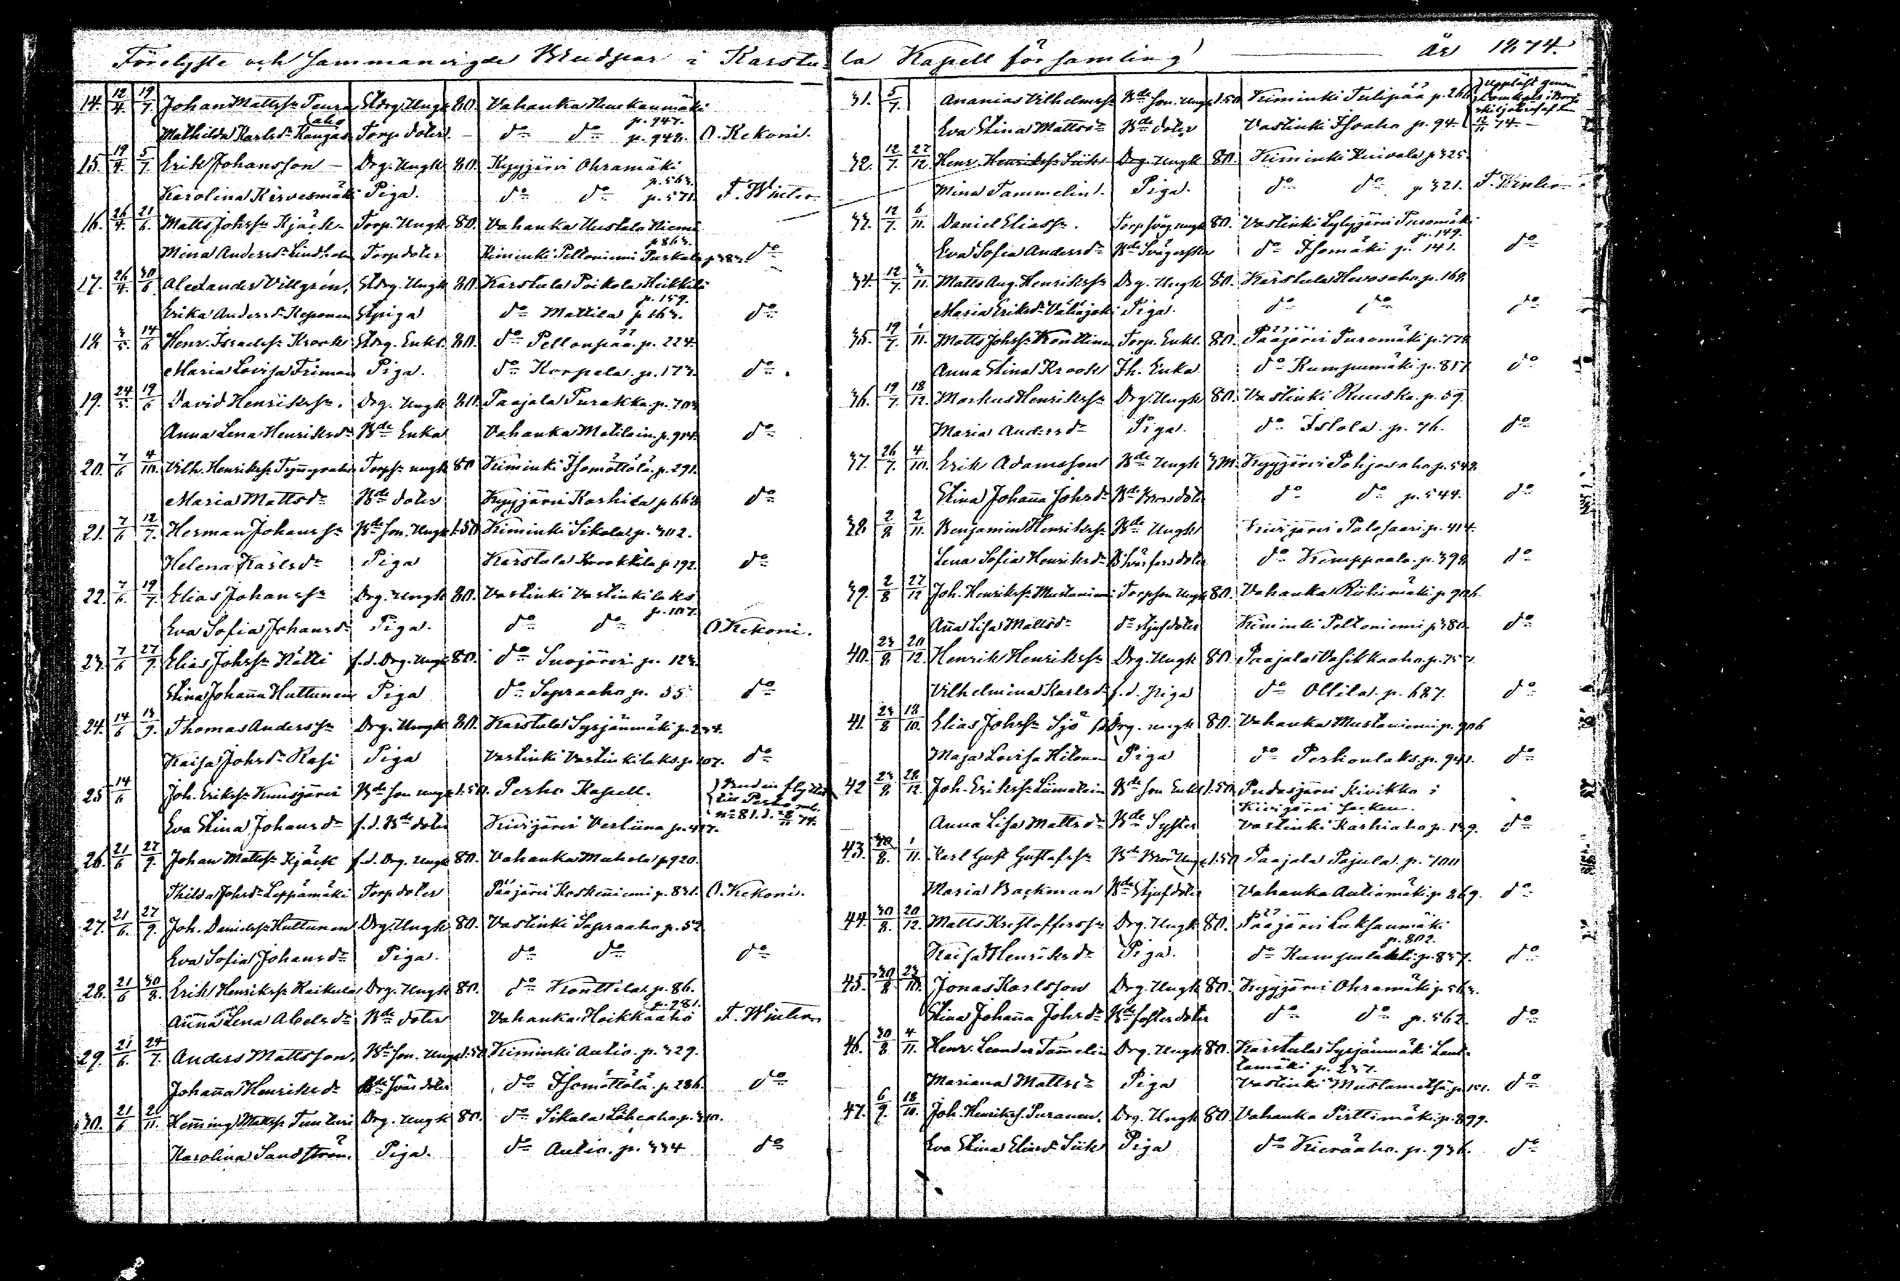 Förelyste och Sammanvigde Brudpar i Karstula Kapell församling År 1874.
14. 12/4 19/7 Johan Mattss Peura Stdrg. Ungk 80. Vahanka Muskanmäki p. 947.
Mathilda Karlsd Kangasaho Torp. doter d:o d:o p. 948. O. Kekoni.
15. 19/4 5/7 Erik Johansson Drg. Ungk 80. Kyyjärvi Ohramäki p. 563.
Karolina Kirvesmäki Piga d:o d:o p. 571. F. Winter
16. 26/4 21/6 Matts Johss Kjäck Torp. Ungk. 80. Vahanka Uustalo Niemi p. 863.
Mina Andersd Lindholm Torp doter Kiminki Peltoniemi Purkala p. 383. d:o
17. 26/4 30/6 Alexander Villgrén Stdrg. Ungk 80. Karstula Poikola Heikkilä p. 159.
Erika Andersd Keponen Stpiga d:o Mattila p. 163. d:o
18. 3/5 14/6 Henr. Israelss Krook Stdrg. Enkl. 80. d:o Pellonpää p. 224.
Maria Lovisa Friman Piga. d:o Korpela p. 173. d:o
19. 24/5 19/6 David Henrikss. Drg. Ungk 80. Paajala Purakka p. 703
Anna Lena Henriksd B:de Enka Vahanka Matilain p. 914. d:o
20. 7/6 4/10. Vilh. Henrikss Torps ungk 80 Kiminki Isomöttölä p. 291.
Maria Mattsd B:de doter Kyyjärvi Kashila p. 668 d:o
21. 7/6 12/7. Herman Johanss B:de Son. Ungk 1.50. Kiminki Sikala p. 302.
Helena Karlsd Piga Karstula Krookkila p. 192. d:o
22. 7/6 19/7. Elias Johanss Drg. Ungk 80. Vastinki Vastinkilaks p. 107.
Eva Sofia Johansd Piga. d:o d:o O. Kekoni.
23. 7/6 27/9. Elias Johss Hätti f.d. Drg. Ungk 80. d:o Suojärvi p. 123.
Stina Johana Huttunen Piga d:o Sopraaho p. 55 d:o
24. 14/6 13/9. Thomas Anderss Drg. Ungk 80. Karstula Syrjänmäki p. 234.
Kaisa Johsd Rasi Piga Vastinki Vastinkilaks p. 107. d:o
25 14/6 Joh. Erikss Kuusijärvi B:de Son ungk 1.50. Perho Kapell.
Eva Stina Johansd f.d. B:de doter Kivijärvi p. 417. No 81. 74.
26. 21/6 27/9. Johan Mattss Kjäck f.d. Drg. Ungk 80. Vahanka Mahola p. 920.
Thilda Johsd Leppämäki Torp doter Pääjärvi Koskeniemi p. 831. O. Kekoni.
27. 21/6 27/9. Joh. Davidss Huttunen Drg. Ungk 80. Vastinki Sopraaho p. 52
Eva Sofia Johansd Piga. d:o d:o d:o
28. 21/6 30/8. Erik Henrikss Raikula Drg. Ungk 80. d:o Konttila p. 86.
Anna Lena Abelsd B:de doter Vahanka Hoikkaaho p. 281. F. Winter
29. 21/6 24/7. Anders Mattsson. B:de Son. Ungk 1.50. Kiminki Autio p. 329.
Johana Henriksd B:de Svär doter d:o Isomöttölä p. 286. d:o
30. 21/6 21/11. Heming Mattss Tunturi Drg. Ungk 80. d:o Sikala Löheaho p. 310.
Karolina Sandström Piga. d:o Autio. p. 334 d:o
31. 5/7. Ananias Vilhelmss B:de Son. Ungk 1.50. Kiminki Tulipää p. 260 Upplöst
Eva Stina Mattsd B:de doter Vastinki Isoaho p. 94. 12/11 74.
32. 12/7 27/12. Henr. Henrikss Siik Drg. Ungk 80. Kiminki Kuivala p. 325.
Mina Tammelin. Piga. d:o d:o p. 321. F. Winter
33. 12/7 6/11. Daniel Eliass. Torp Svåg ungk 80. Vastinki Turamäki p. 149.
Eva Sofia Andersd B:de Svägerska d:o Isomäki p. 141. d:o
34. 12/7 3/11. Matts Aug. Henrikss Drg. Ungk 80. Karstula Hevosaho p. 168.
Maria Eriksd Vähäjoki Piga. d:o d:o d:o
35. 19/7 1/11. Matts Johss Konttinen Torp. Enkl. 80. Pääjärvi Turamäki p. 778
Anna Stina Krook Jh. Enka d:o Kumpumäki p. 817 d:o
36. 19/7 18/12. Markus Henrikss Drg. Ungk 80. Vastinki Ruuska p. 59
Maria Andersd Piga. d:o Islola p. 76. d:o
37. 26/7 4/10. Erik Adamsson B:de Ungk 3M. Kyyjärvi Pohjosaho p. 548.
Stina Johana Johsd B:de Brors doter d:o d:o p. 544. d:o
38. 2/8 2/11. Benjamin Henrikss B:de Ungk Kivijärvi Palosaari p. 414.
Lena Sofia Henriksd d:o Kemppaala p. 398 d:o
39. 2/8 27/12 Joh. Henrikss Mustaniemi Torp Son Ungk 80. Vahanka Riihimäki p. 906.
Ana Lisa Mattsd d:o styfdoter Kiminki Peltoniemi p. 380. d:o
40. 23/8 20/12. Henrik Henrikss Drg. Ungk 80 Paajala Vasikkaaho p. 757.
Vilhelmina Karlsd f.d. Piga d:o Ollila p. 687. d:o
41. 23/8 18/10. Elias Johss Sjö Drg. ungk 80. Vahanka Mustaniemi p. 906
Maja Lovisa Hitonen Piga d:o Perhonlaks p. 941. d:o
42 23/8 28/12. Joh. Erikss Liimatain B:de Son Enkl 1.50. Pudasjärvi Kivikko i Kivijärvi Socken.
Anna Lisa Mattsd B:de Syster Vastinki Karhiaho p. 139. d:o
43. 30/8. 1/11. Karl Gust Gustafss B:de Bror Ungk 1.50 Paajala Pajula p. 700
Maria Backman B:de Styfdoter Vahanka Autiomäki p. 869. d:o
44. 30/8. 20/12. Matts Kristofferss Drg. Ungk 80. Pääjärvi Luksanmäki p. 802.
Kaisa Henriksd Piga. d:o Kumpulahti p. 837. d:o
45. 30/8 23/10. Jonas Karlsson Drg. Ungk 80. Kyyjärvi Ohramäki p. 563.
Stina Johana Johsd B:de foster doter d:o d:o p. 562. d:o
46. 30/8 4/11. Henr. Leander Tamelin Drg. Ungk 80. Karstula Syrjänmäki p. 237.
Mariana Mattsd Piga Vastinki Mustametsä p. 151. d:o
47. 6/9. 18/10. Joh. Henrikss. Puranen. Drg. Ungk 80 Vahanka Pirttimäki p. 899.
Eva Stina Eliasd Siik Piga d:o Kieroaho p. 936. d:o